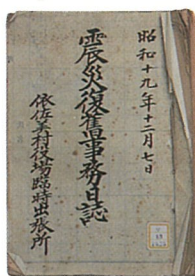 昭和十九年十二月七日
震災復舊事務日誌
依佐美村役場臨時出張所